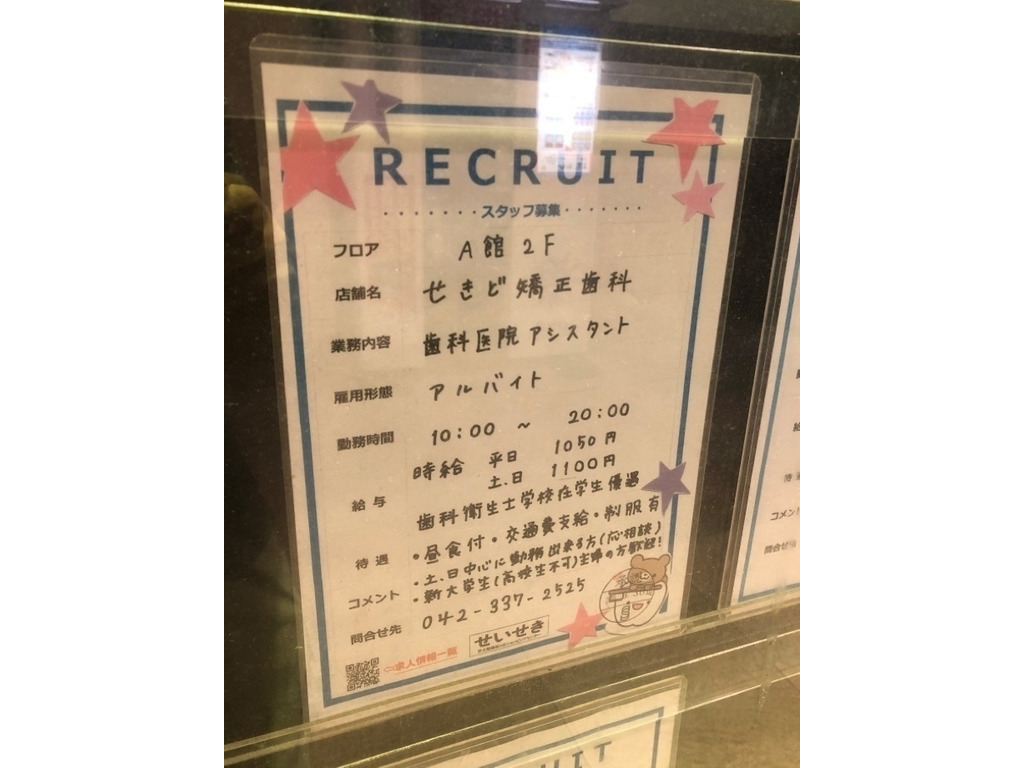 RECRUIT
・・・・・・・スタッフ募集・・・・・・・
フロア A館 2F
店舗名 せきど矯正歯科
業務内容 歯科医院アシスタント
雇用形態 アルバイト
勤務時間 10:00 ~ 20:00
給与 時給 平日 1050円
土、日 1100円
歯科衛生士学校在学生優遇
待遇 ・昼食付・交通費支給・制服有
コメント ・土、日中心に勤務出来る方(応相談)
・新大学生(高校生不可)主婦の方歓迎!
問合せ先 042-337-2525
⇦求人情報一覧
せいせき
コメント
問合せ
UIT